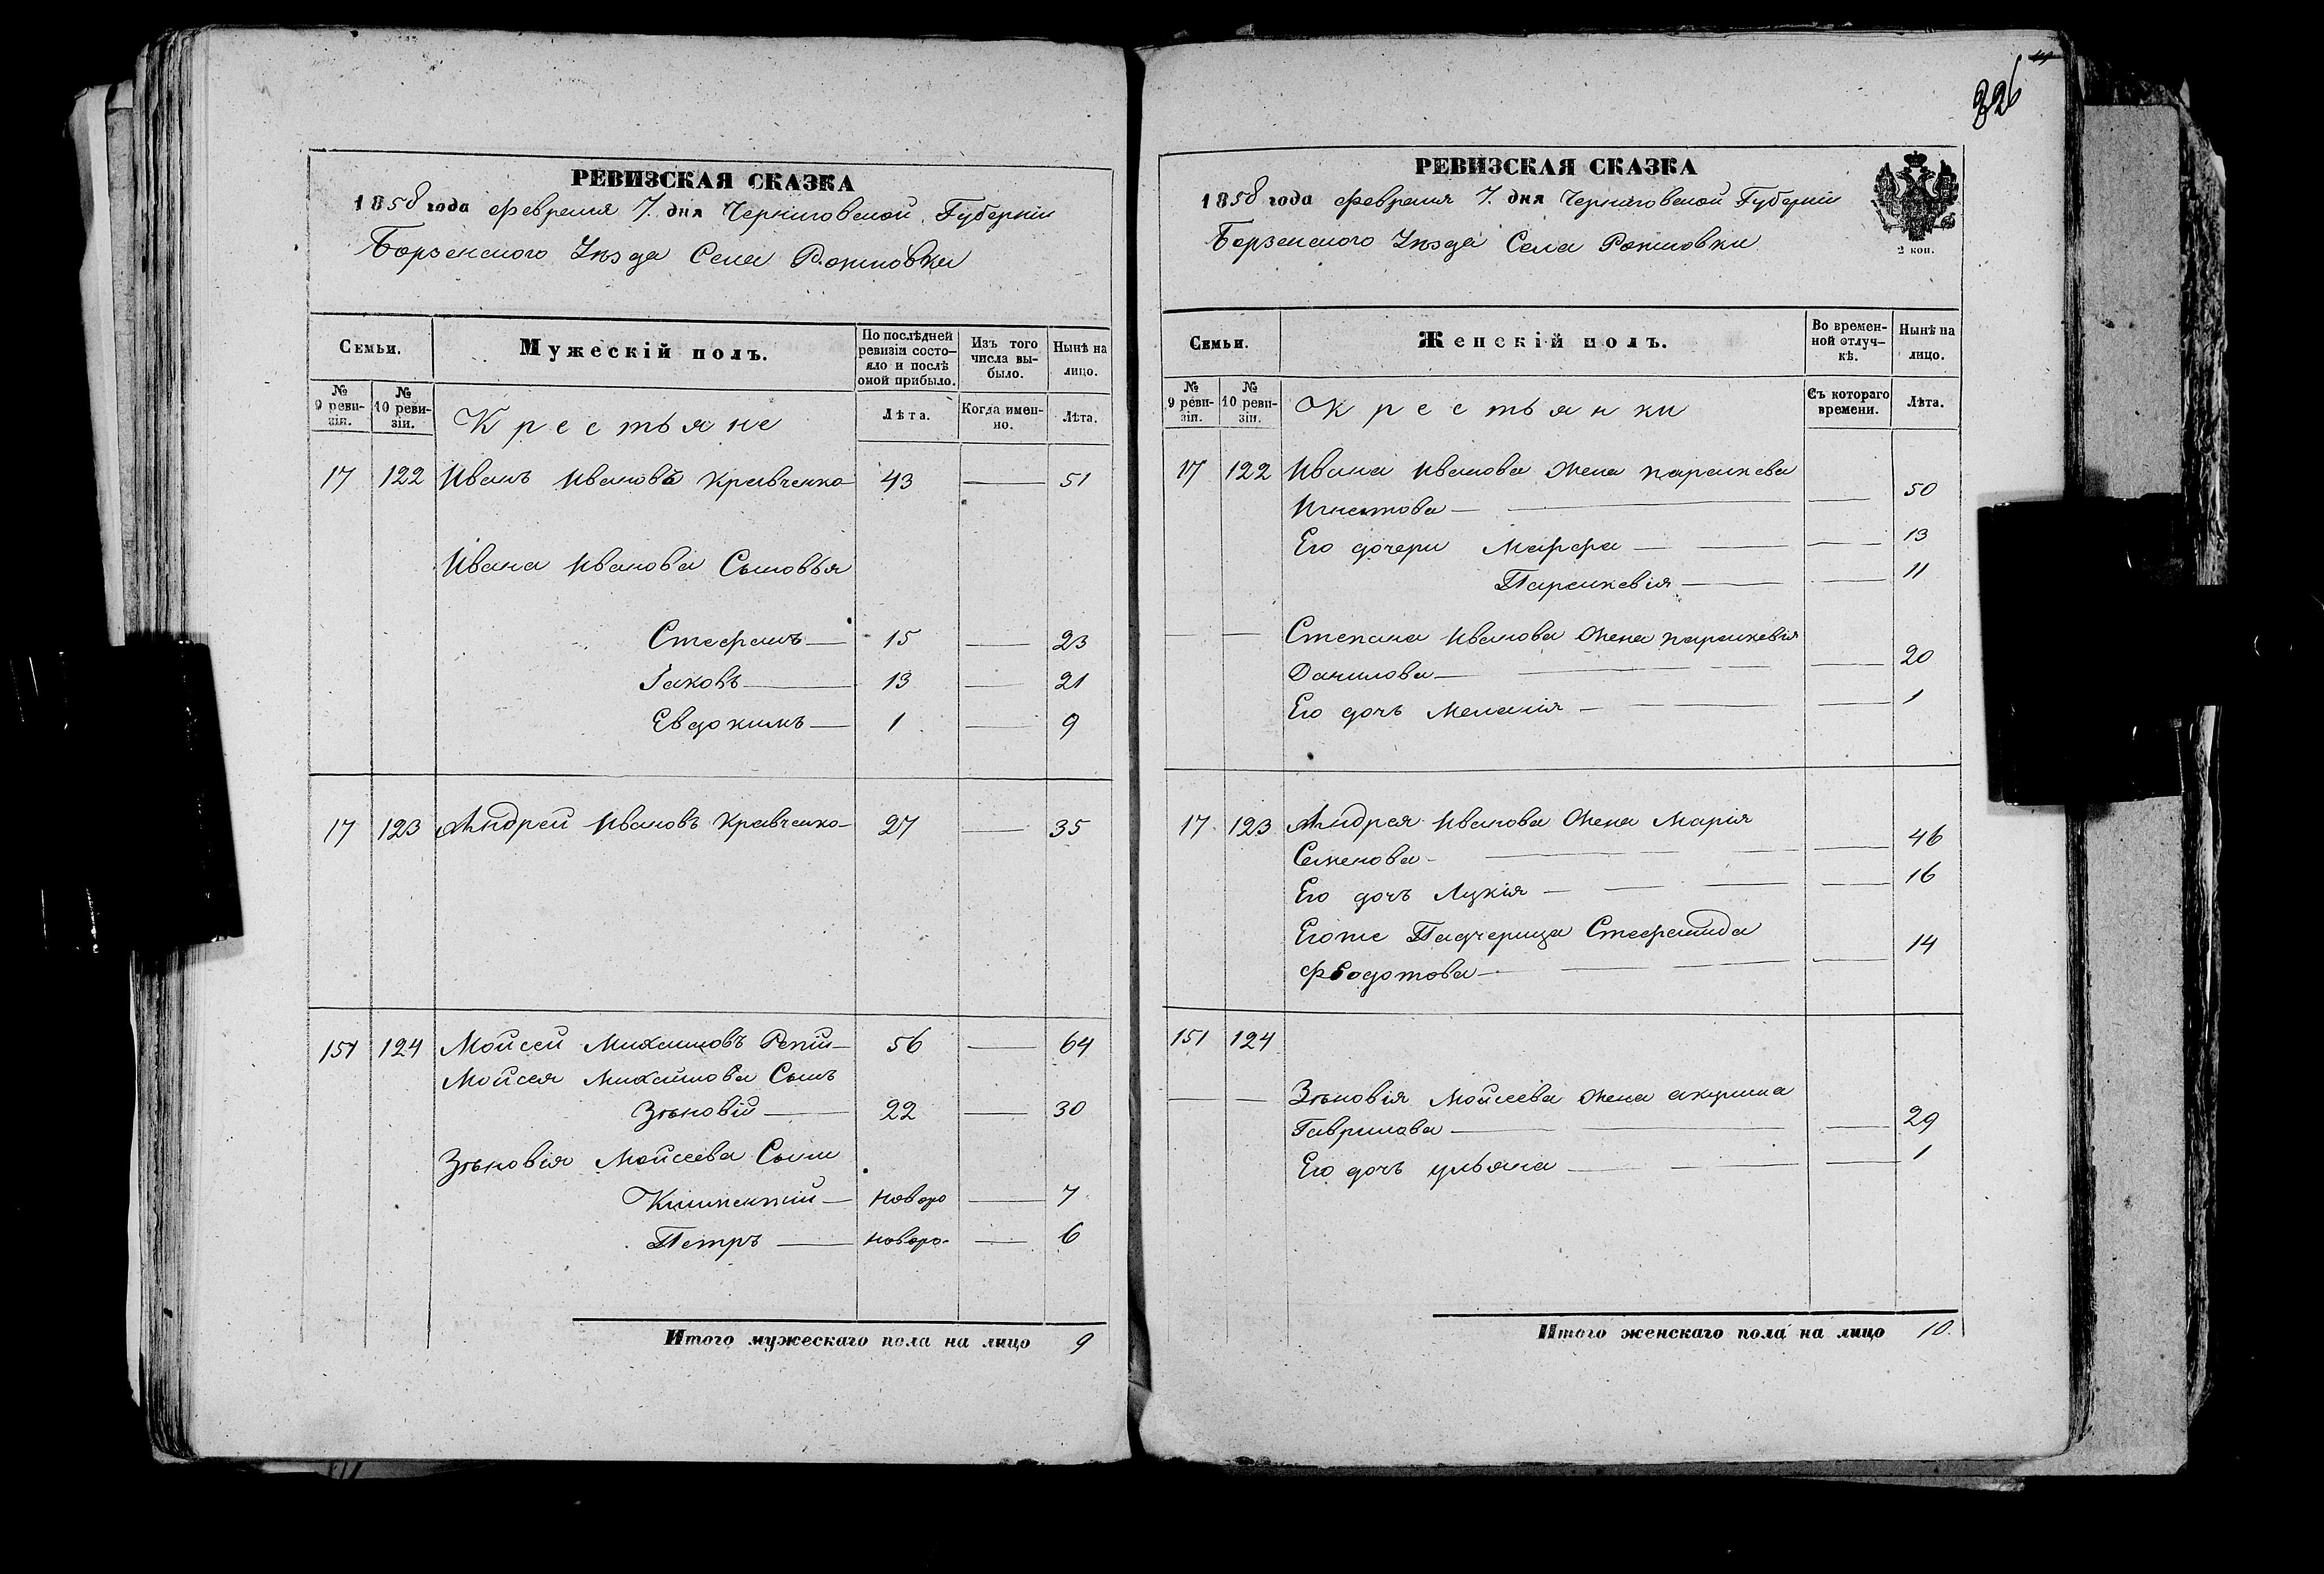 РЕВИЗСКАЯ СКАЗКА
1858 года февраля 7. дня Черниговской Губерніи
Борзенского Уѣзда Села Рожновки
Семьи.
Мужескій полъ.
По послѣдней ревизіи состояло и послѣ оной прибыло.
Изъ того числа выбыло.
Нынѣ на лицо.
№ 9 ревизіи.
№ 10 ревизіи.
Крестьяне
Лѣта.
Когда именно.
Лѣта.
17 122 Иванъ Ивановъ Кравченко 43 — 51
Ивана Иванова Сыновья
Стефанъ — 15 — 23
Іаковъ — 13 — 21
Евдокимъ — 1 — 9
17 123 Андрей Ивановъ Кравченко — 27 — 35
151 124 Мойсей Михайловъ Репій — 56 — 64
Мойсея Михайлова Сынъ
Зѣновій — 22 — 30
Зѣновія Мойсеева Сыны
новоро — 7
Петръ — новоро- — 6
Итого мужескаго пола на лицо 9
326
РЕВИЗСКАЯ СКАЗКА
1858 года февраля 7. дня Черниговской Губерніи
Борзенского Уѣзда Села Рожновки
2 коп.
Семьи.
Женскій полъ.
Во временной отлучкѣ.
Нынѣ на лицо.
№ 9 ревизіи.
№ 10 ревизіи.
Крестьянки
Съ котораго времени.
Лѣта.
17 122 Ивана Иванова жена параскева
Игнатова — — 50
Его дочери Марфа — — 13
Параскевія — — 11
— — Степана Иванова жена параскевія
Данилова — — 20
Его дочь Меланія — — 1
17 123 Андрея Иванова жена Марія
Семенова — — 46
Его дочь Лукія — — 16
Егоже Падчерица Стефанида
Фѣодотова — — 14
151 124
— — Зѣновія Мойсеева жена акулина
Гаврилова — — 29
Его дочь ульяна — — 1
Итого женскаго пола на лицо 10.